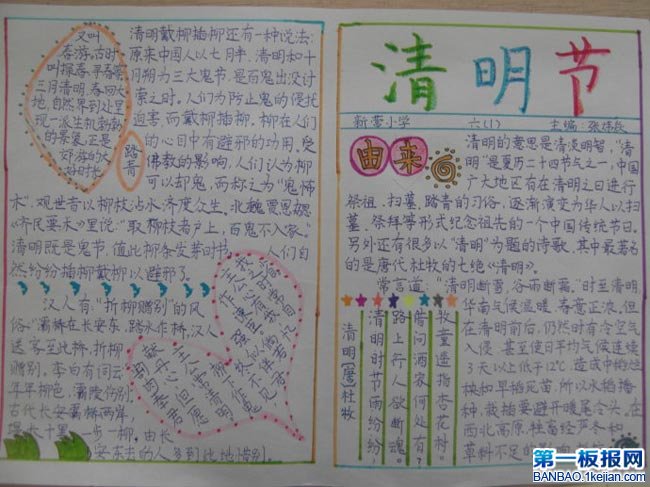 又叫
春游。古时
叫探春、寻春等。
三月清明,春回大
地,自然界到处呈
现一派生机勃勃
的景象,正是
郊游的大
好时光
踏青
清明戴柳插柳还有一种说法:
原来中国人以七月半、清明和十
月朔为三大鬼节,是百鬼出没讨
索之时。人们为防止鬼的侵扰
迫害,而戴柳插柳,柳在人们
的心目中有避邪的功用,受
佛教的影响,人们认为柳
可以却鬼,而称之为"鬼怖
木",观世音以柳枝沾水济度众生。北魏贾思勰
《齐民要术》里说:"取柳枝著户上,百鬼不入家。"
清明既是鬼节,值此柳条发芽时节,人们自
然纷纷插柳戴柳以避邪了
汉人有:"折柳赠别"的风
俗:"灞桥在长安东,跨水作桥,汉人
送客至此桥,折柳
赠别。李白有词云:
年年柳色,灞陵伤别。
古代长安灞桥两岸,
堤长十里,一步一柳。由长
安东去的人多到此地惜别。
清明节
新蕾小学 六(1) 主编:张炜兵
由来
清明的意思是清淡明智,"清
明"是夏历二十四节气之一,中国
广大地区有在清明之日进行
祭祖、扫墓、踏青的习俗,逐渐演变为华人以扫
墓、祭拜等形式纪念祖先的一个中国传统节日。
另外还有很多以"清明"为题的诗歌,其中最著名
的是唐代杜牧的七绝《清明》。
常言道:"清明断雪,谷雨断霜。"时至清明,
华南气候温暖,春意正浓。但
在清明前后,仍然时有冷空气
入侵,甚至使日平均气候连续
3天以上低于12℃,造成中稻烂
秧和早稻死苗,所以水稻播
种、栽插要避开暖尾冷头。在
西北高原,牲畜经严冬和
草料不足的影响
清明(唐)杜牧
清明时节雨纷纷,
路上行人欲断魂。
借问酒家何处有?
牧童遥指杏花村。
第一板报网
BANBAO.1kejian.COM